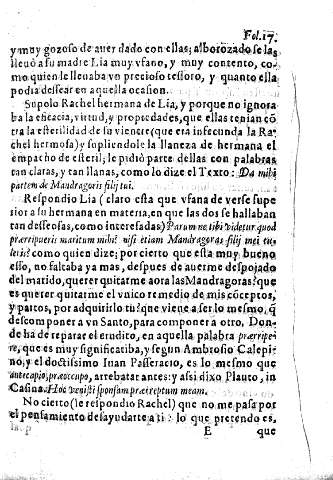 Fol.17.
y muy gozoso de auer dado con ellas; alborozado se las
lleuó a su madre Lia muy vfano, y muy contento, co-
mo quien le lleuaba vn precioso tesoro, y quanto ella
podia desear en aquella ocasion.
Supolo Rachel hermana de Lia, y porque no ignora-
ba la eficacia, virtud, y propiedades, que ellas tenian cō
tra la esterilidad de su vientre (que era infecunda la Ra-
chel hermosa) y supliendole la llaneza de hermana el
empacho de esteril; le pidiò parte dellas con palabras
tan claras, y tan llanas, como lo dize el Texto: Da mihi
partem de Mandragoris filij tui.
Respondio Lia (claro esta que vfana de verse supe-
rior a su hermana en materia, en que las dos se hallaban
tan desseosas, como interesadas) Parum ne tibi videtur quod
præripueris maritum mihi nisi etiam Mandragoras filij mei tu-
leris? como quien dize; por cierto que està muy bueno
esso, no faltaba ya mas, despues de auerme despojado
del marido, querer quitarme aora las Mandragoras? que
es querer quitarme el vnico remedio de mis cōceptos,
y partos, por adquirirlo tu? que viene a ser lo mesmo, q̄
descomponer a vn Santo, para componer a otro. Don-
de ha de reparar el erudito, en aquella palabra præripe-
re, que es muy significatiba, y segun Ambrosio Calepi-
no, y el doctissimo Iuan Passeracio, es lo mesmo que
antecapio, præoccupo, arrebatar antes: y assi dixo Plauto, in
Casina. Hoc vegisti sponsam præreptum meam.
No cierto (le respondio Rachel) que no me pasa por
el pensamiento desayudarte a ti: lo que pretendo es,
E que